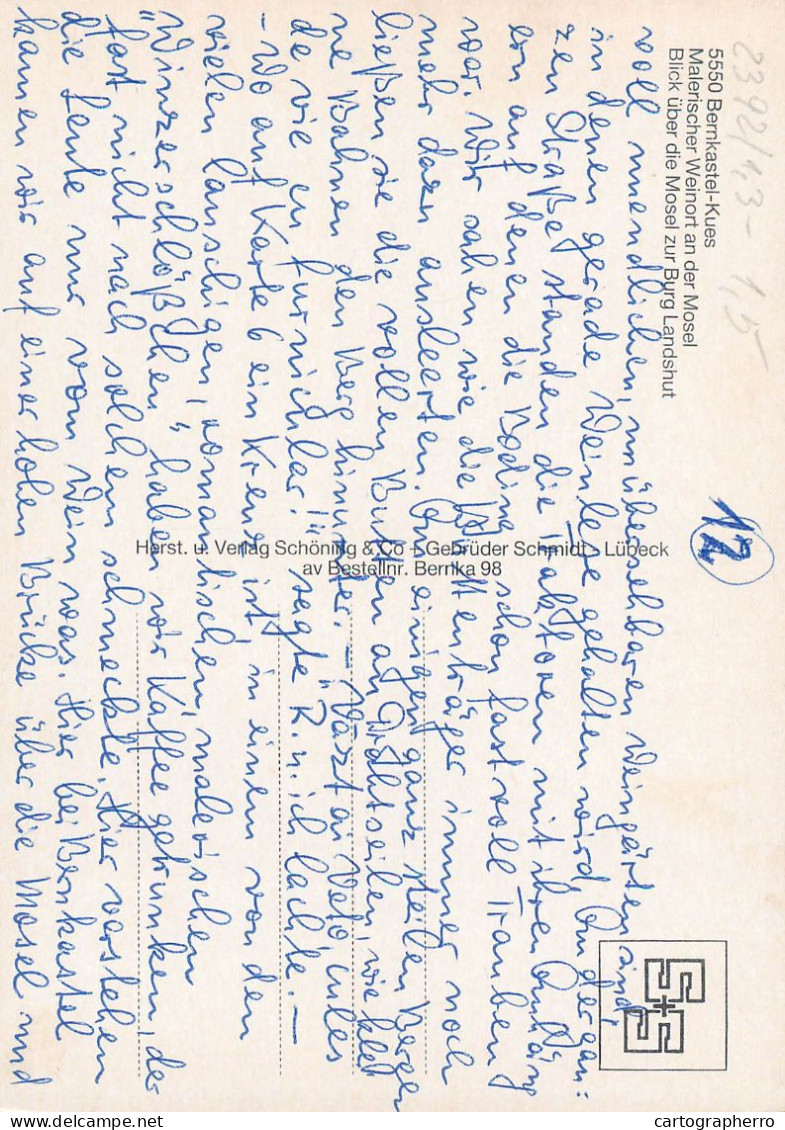 2392/13 - 1,5
5550 Bernkastel-Kues
Malerischer Weinort an der Mosel
Blick über die Mosel zur Burg Landshut
12
voll unendlichen, unübersehbaren Weingärten sind,
in denen gerade Weinlese gehalten wird. An der gan=
zen Straße standen die Traktoren mit ihren Anhäng
ern auf denen die Boding schon fast voll Trauben
war. Wir sahen wie die Buttenträger immer noch
mehr dazu ausleerten. An einigen ganz steilen Bergen
ließen sie die vollen Butten an Drahtseilen, wie klei
ne Bahnen den Berg hinunter. -
de vie en furnichlar!" sagte R. u. ich lachte. -
- Wo auf Karte 6 ein Kreuz ist, in einem von den
vielen lauschigen, romantischen, malerischen
"Winzerschlößchen" haben wir Kaffee getrunken, der
fast nicht nach solchem schmeckte. Hier verstehen
die Leute nur vom Wein was. Hier bei Bernkastel
kamen wir auf einer hohen Brücke über die Mosel und
Herst. u. Verlag Schöning & Co + Gebrüder Schmidt - Lübeck
av Bestellnr. Bernka 98
S+S
cartographerro